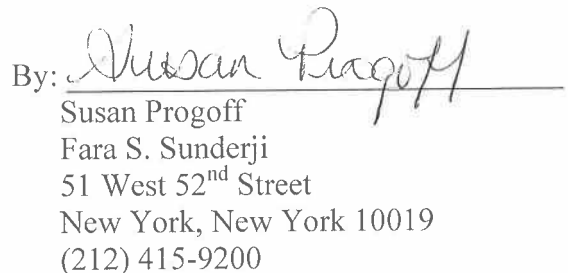 By: Susan Progoff
Susan Progoff
Fara S. Sunderji
51 West 52nd Street
New York, New York 10019
(212) 415-9200